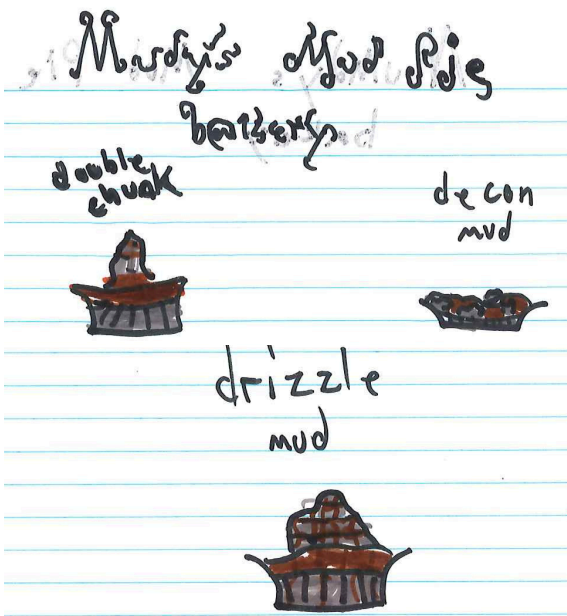 Mudyis Mud Pie,
bakery
double
chunk
decon
mud
drizzle
mud